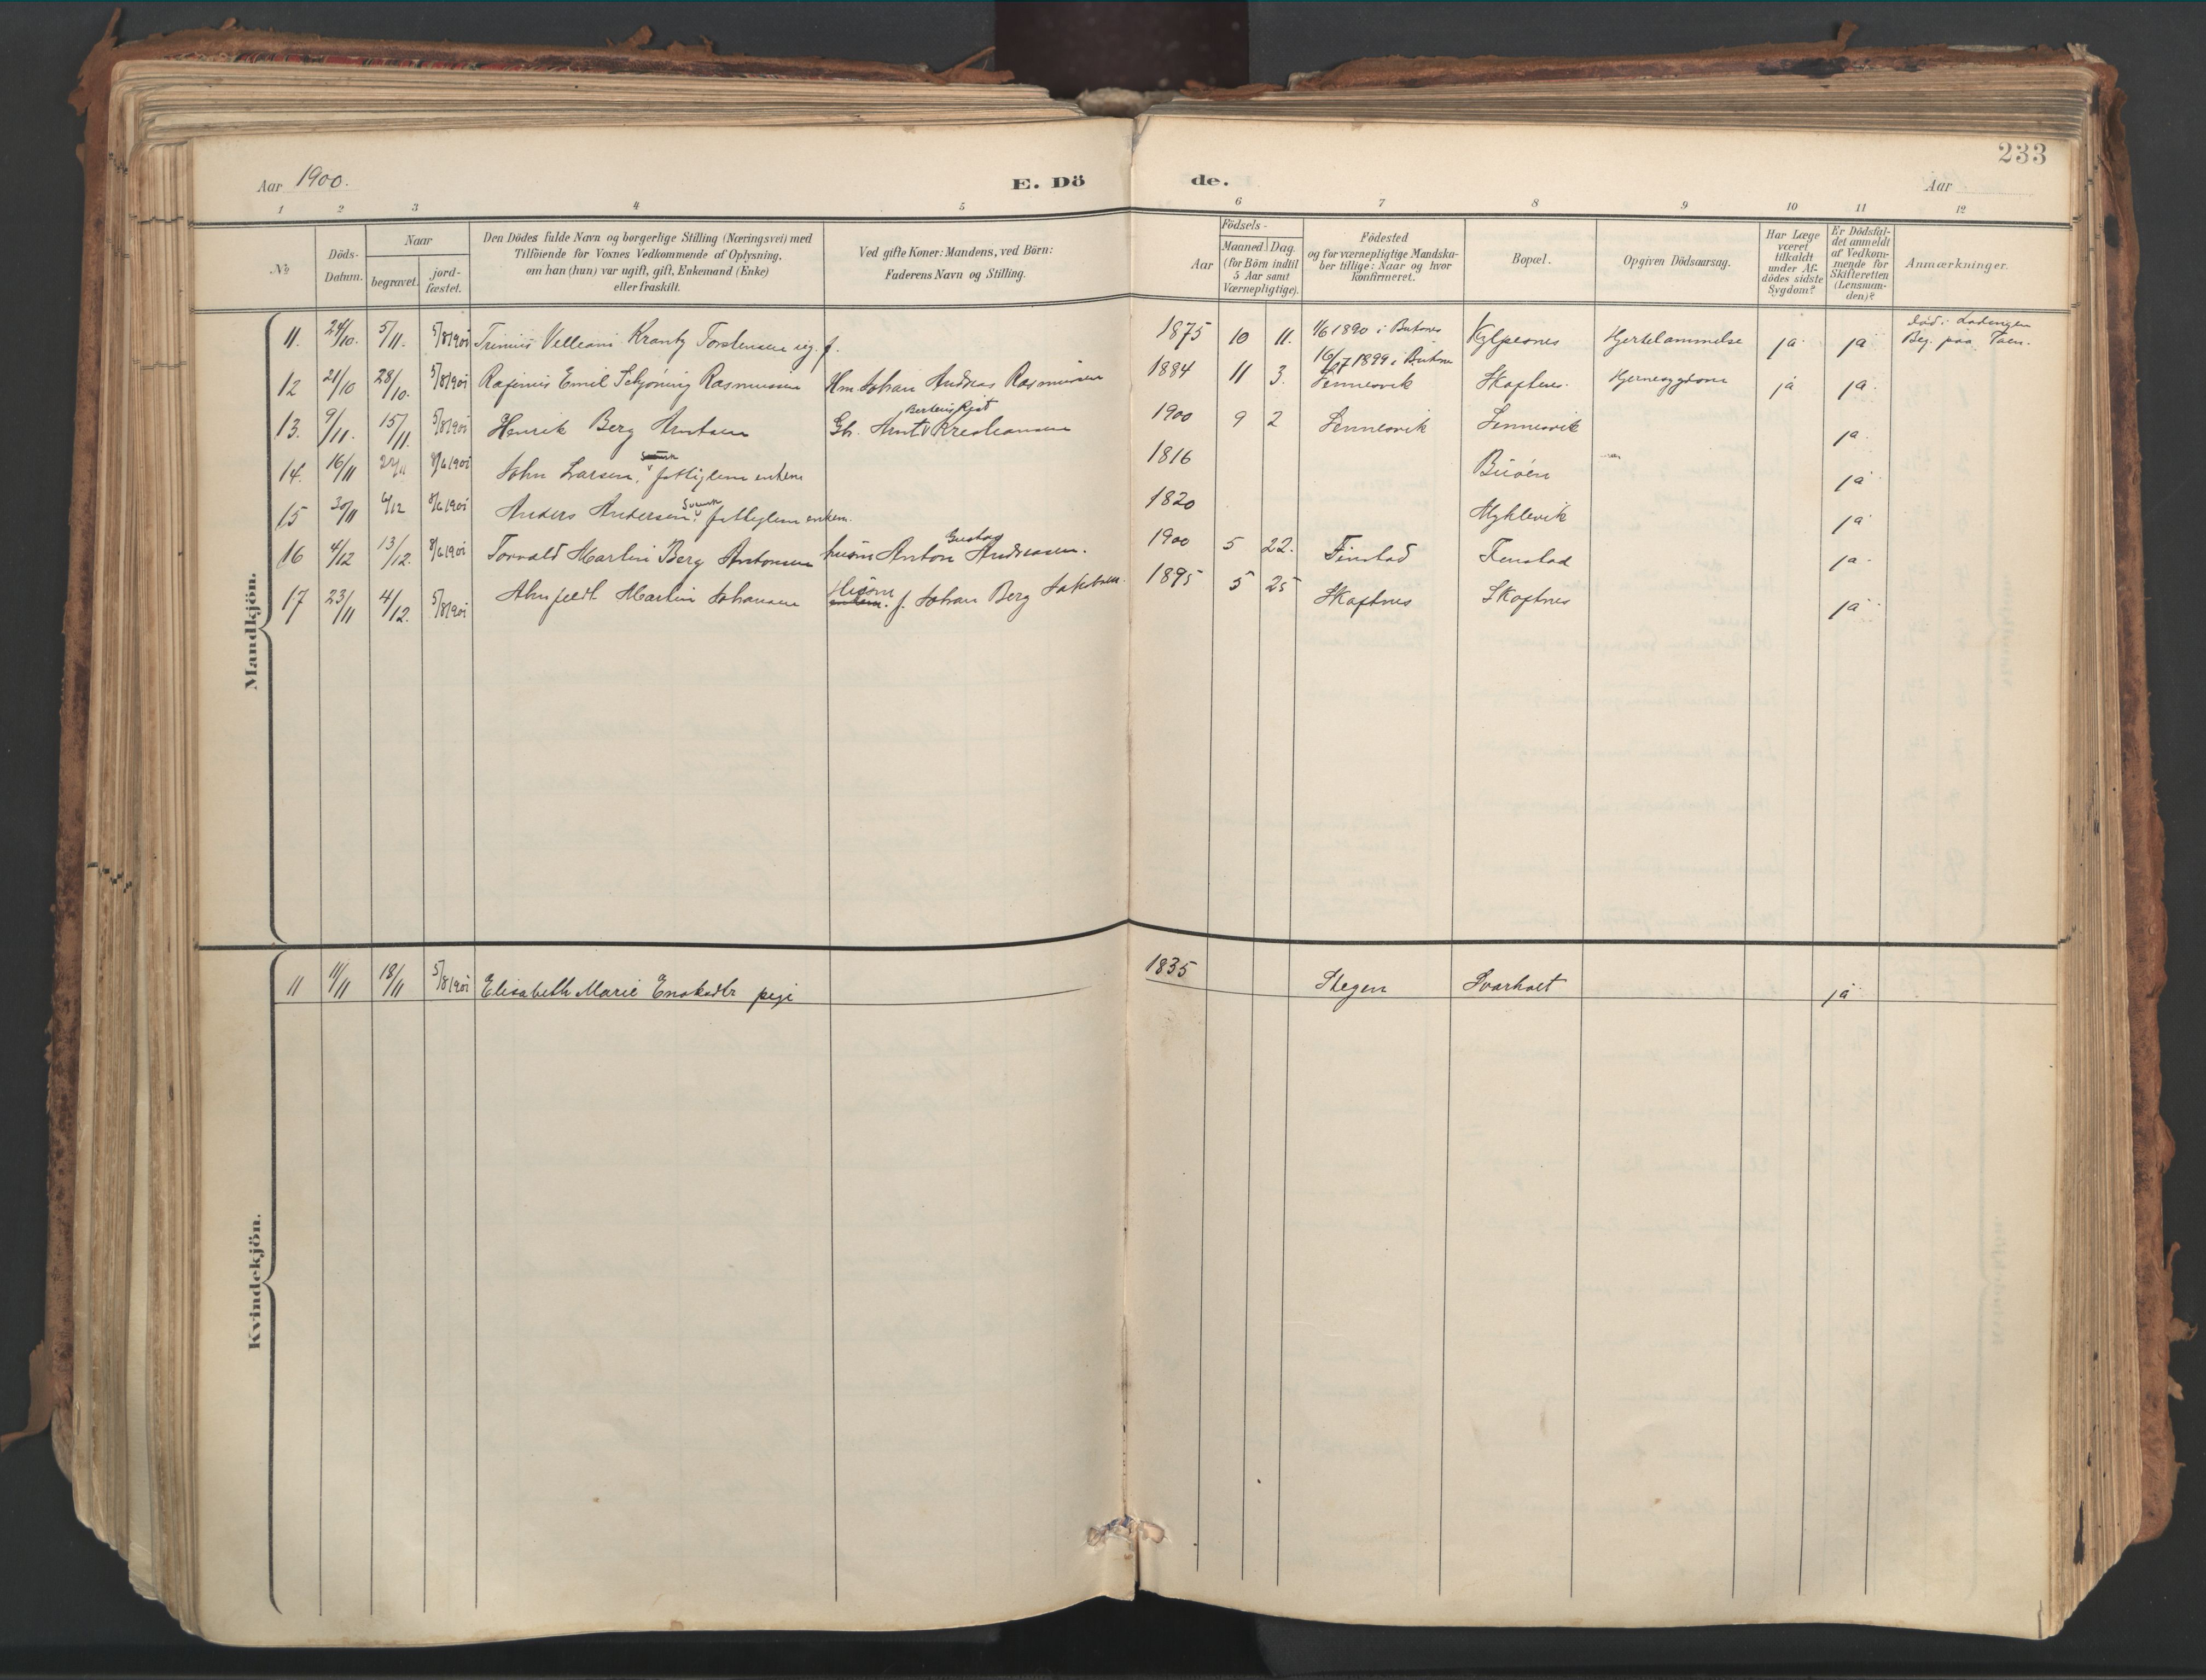 233
Aar 1900. E. Dö de. Aar
1 2 3 4 5 6 7 8 9 10 11 12
No
Döds-Datum.
Naar
begravet.
jord-fæstet.
Den Dödes fulde Navn og borgerlige Stilling (Næringsvei) med
Tilföiende for Voxnes Vedkommende af Oplysning,
om han (hun) var ugift, gift, Enkemand (Enke)
eller fraskilt.
Ved gifte Koner: Mandens, ved Börn:
Faderens Navn og Stilling.
Födsels-
Aar
Maaned. Dag.
(for Börn indtil
5 Aar samt
Værnepligtige).
Födested
og for værnepligtige Mandska-
ber tillige: Naar og hvor
konfirmeret.
Bopæl.
Opgiven Dödsaarsag.
Har Læge
været
tilkaldt
under Af-
dödes sidste
Sygdom?
Er Dödsfal-
det anmeldt
af Vedkom-
mende for
Skifteretten
(Lensman-
den)?
Anmærkninger.
Mandkjön.
11. 24/10. 5/11. 5/8 1901 Torstensen ug. f. 1875 10 11. 1/6 1890 i Buksnes Hjertelammelse ja ja Död i Lödingen
Beg. paa
12 21/10 28/10. 5/8 1901 Emil Schjöning Rasmussen Hm Johan Andreas Rasmussen 1884 11 3. 1899 i
Sennesvik Skaftnes. Hjernesygdom ja ja.
13. 9/11. 15/11. 5/8 1901 Henrik Berg Arntsen Gb. Arnt Kristiansen 1900 9 2 Sennesvik Sennesvik ja.
14. 16/11 8/6 1901 John Larsen, fattiglem enkem 1816 Buöen ja
15 30/11 6/12 8/6 1901 Anders Andersen, fattiglem enkem. 1820 Myklevik ja
16 4/12 13/12. 8/6 1901 Torvald Martin Berg Antonsen husm Anton Gustav Andreasen. 1900 5 22. Finstad Finstad ja.
17 23/11 4/12. 5/8 1901 Almfeldt Martin Johansen Husm f. Johan Berg Jakobsen. 1895 5 25 Skaftnes Skaftnes ja
Kvindekjön.
11 11/11 18/11 5/8 1901 Elisabeth Marie Enoksdtr pige 1835 Stegen Svarholt ja